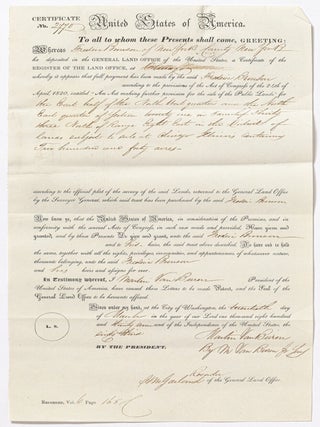 CERTIFICATE United States of America.
No. 2778
To all to whom these Presents shall come, GREETING:
Whereas Frederic Bronson of New York County New York
has deposited in the GENERAL LAND OFFICE of the United States, a Certificate of the
REGISTER OF THE LAND OFFICE, at
whereby it appears that full payment has been made by the said Frederic Bronson
according to the provisions of the Act of Congress of the 24th of
April, 1820, entitled "An Act making further provision for the sale of the Public Lands," for
the East half of the North East quarter and the North
East quarter of Section twenty one in Township Thirty
three North of Range Eight East in the District of
lands subject to sale at Chicago Illinois containing
Two hundred and forty acres
according to the official plat of the survey of the said Lands, returned to the General Land Office
by the Surveyor General, which said tract has been purchased by the said Frederic Bronson
Now know ye, that the United States of America, in consideration of the Premises, and in
conformity with the several acts of Congress, in such case made and provided, Have given and
granted, and by these Presents Do give and grant, unto the said Frederic Bronson
and to his heirs, the said tract above described: To have and to hold
the same, together with all the rights, privileges, immunities, and appurtenances of whatsoever nature,
thereunto belonging, unto the said Frederic Bronson
and to his heirs and assigns for ever.
In Testimony whereof, I, Martin Van Buren President of the
United States of America, have caused these Letters to be made Patent, and the Seal of the
General Land Office to be hereunto affixed.
Given under my hand, at the City of Washington, the twentieth day
of March in the year of our Lord one thousand eight hundred
and thirty nine and of the Independence of the United States, the
sixty third
L. S.
BY THE PRESIDENT: Martin Van Buren
By M Van Buren Jr Sec'y
H M Garland Recorder of the General Land Office.
RECORDED, Vol. Page